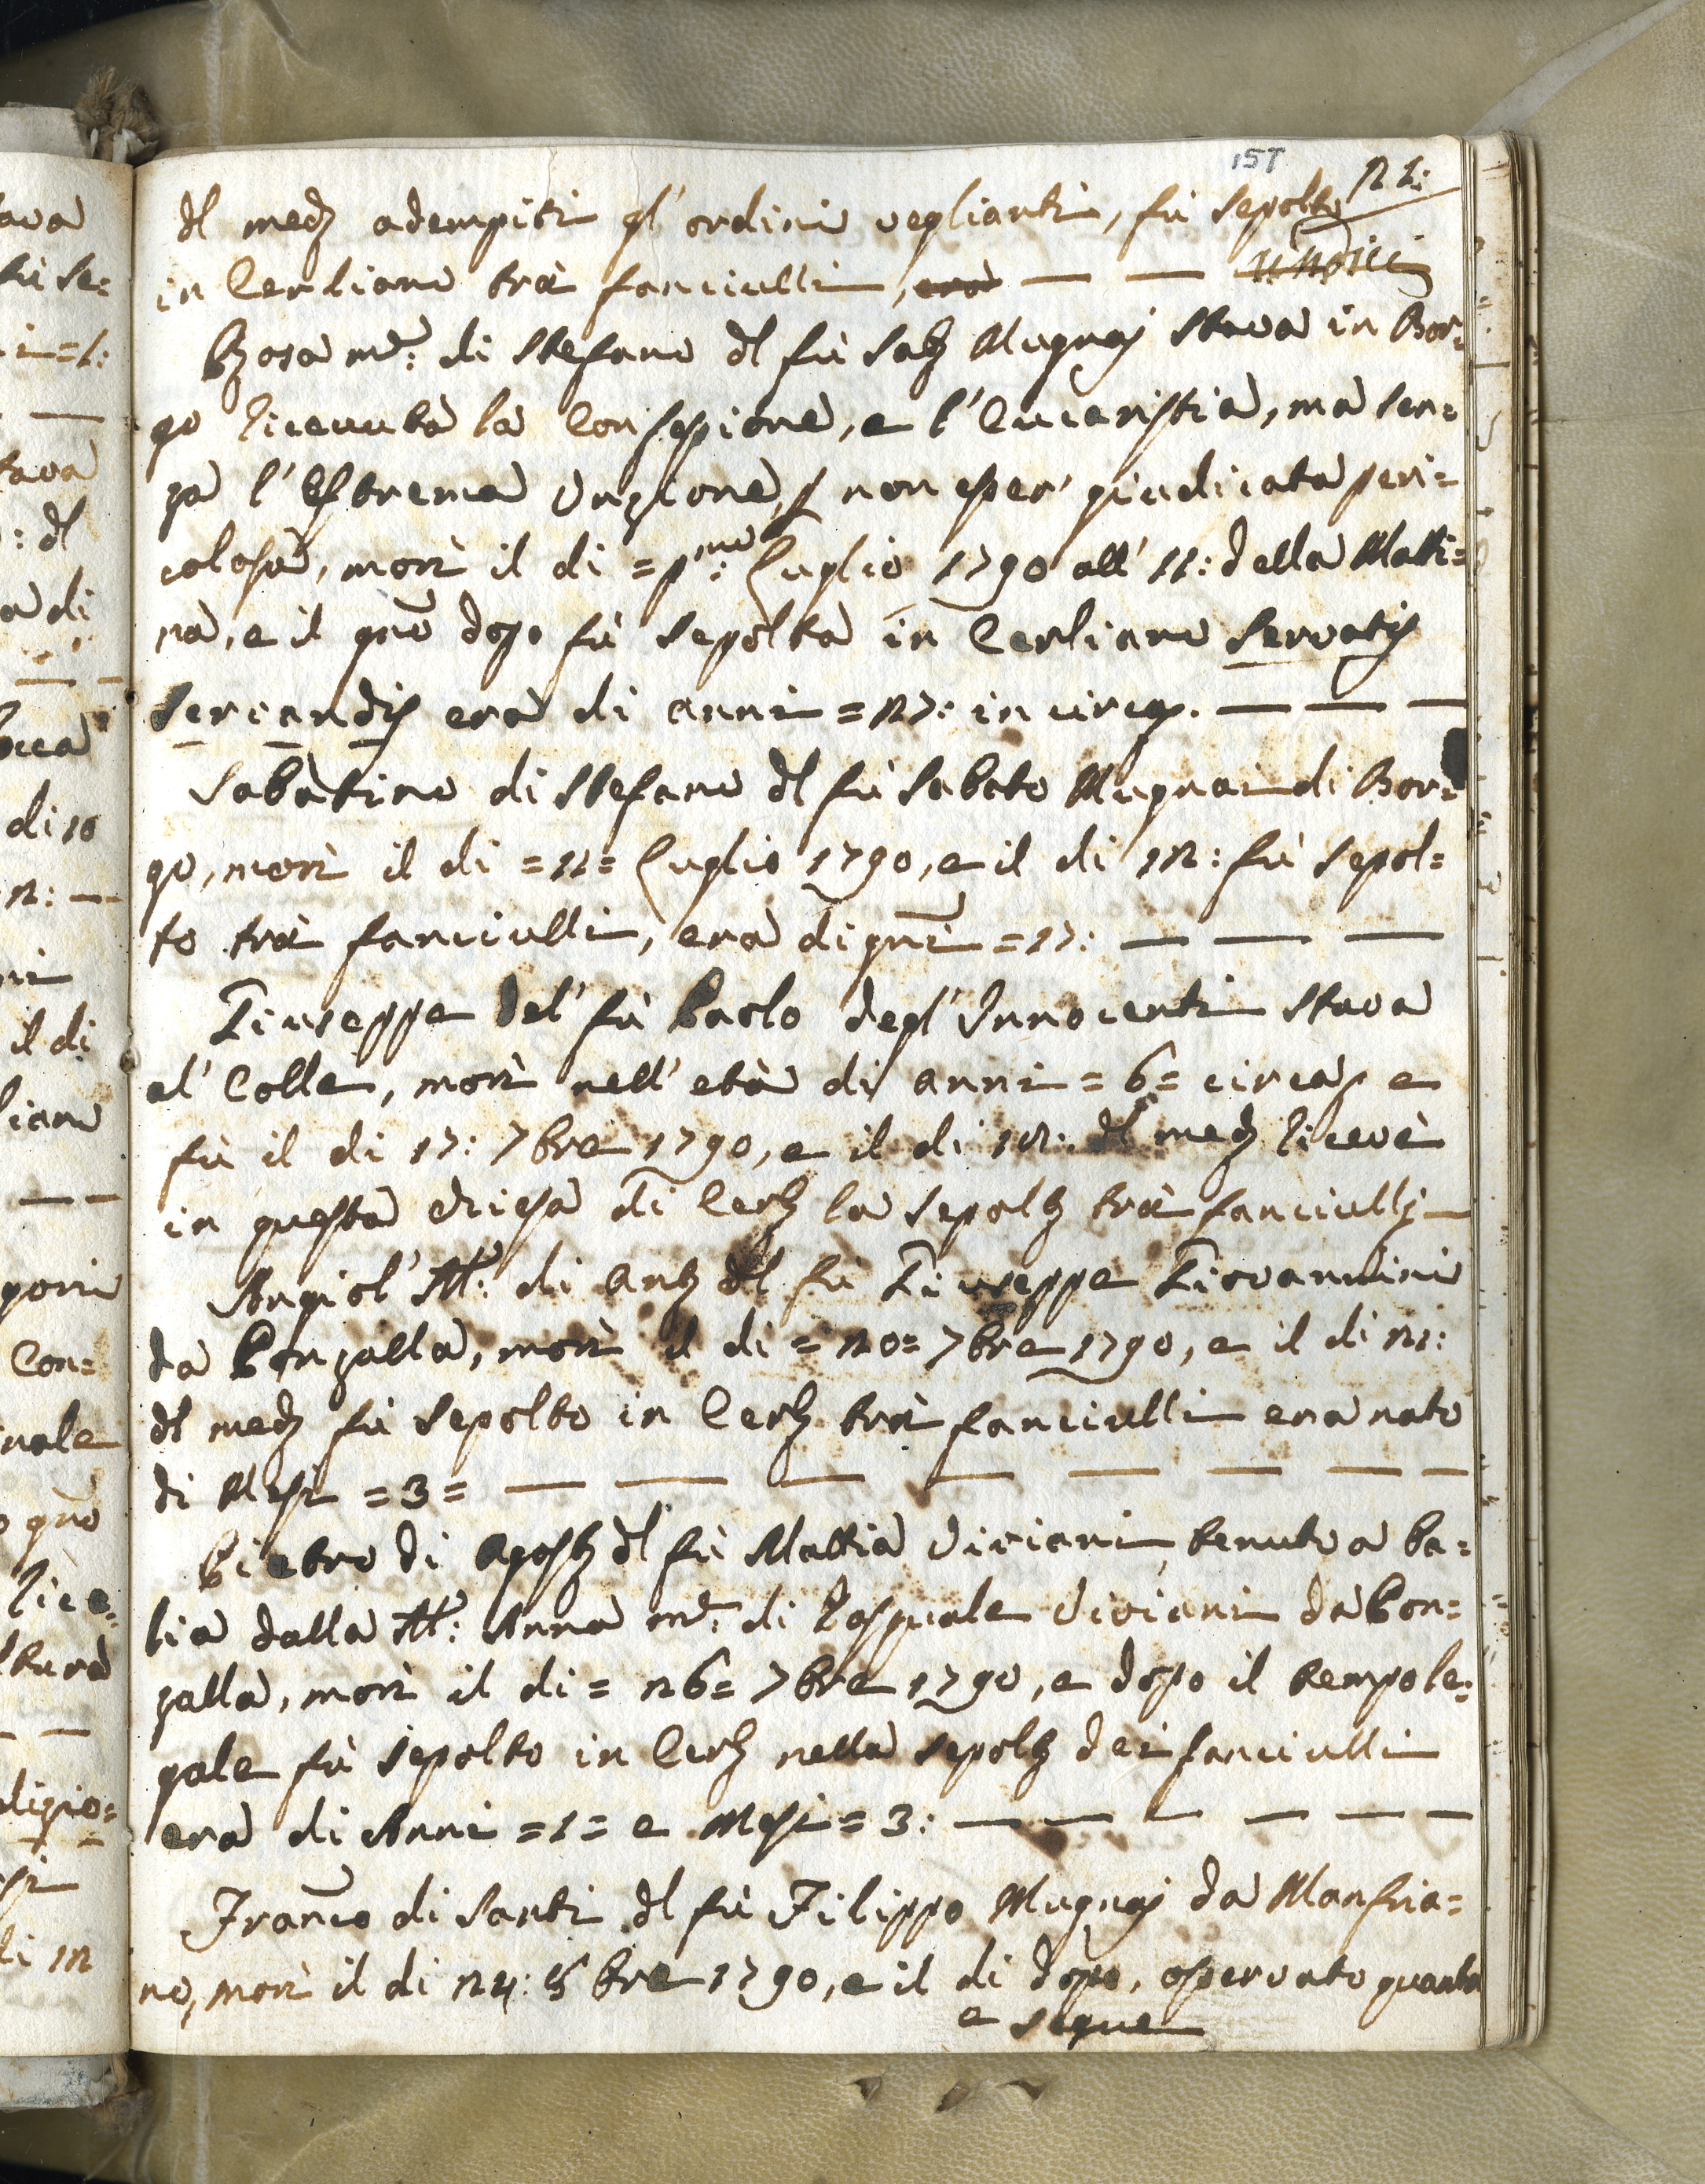 157
21:
dl med° adempiti gl' ordini veglianti, fù sepolto
in Cerliano trà fanciulli, era — —
Rosa m.e: di Stefano dl fù Sab° Mugnaj stava in Bor=
go ricevuta la Confessione, e l'Eucaristia, ma sen=
za l'Estrema Unzione, p non esser' giudicata peri=
colosa, morì il di = p.mo: Luglio 1790 all' 11: della Matti=
na, e il gno dopo fù sepolta in Cerliano servatis
servandis era di anni = 27: in circa. — — —
Sabatino di Stefano dl fù Sabato Mugnai di Bor=
go, morì il di = 11 = Luglio 1790, e il di 12: fù sepol=
to trà fanciulli, era di gni = 17: — — —
Giuseppe del' fù Paolo degl' Innocenti stava
al' Colle, morì nell' età di anni = 6 = circa, e
fù il di 17: 7bre 1790, e il di 18: dl med° ricevè
in questa chiesa di Cerl° la sepolt° trà fanciulli
Angiol' M.a: di Ant° dl fù Giuseppe Giovannini
da Ponzalla, morì il di = 20 = 7bre 1790, e il di 21:
dl med° fù sepolto in Cerl° trà fanciulli era nato
di Mesi = 3 = — — — — — — — —
Pietro di Agost° dl fù Mattia Viviani, tenuto a ba=
lia dalla M.a: Anna m.e: di Pasquale Viviani da Pon=
zalla, morì il di = 26 = 7bre 1790, e dopo il tempo le=
gale fù sepolto in Cerl° nella sepolt° dei fanciulli
era di Anni = 1 = e Mesi = 3: — — — — — —
Franco di Santi dl fù Filippo Mugnaj da Manfria=
no, morì il di 24: 8bre 1790, e il di dopo, osservato quanto
e segue